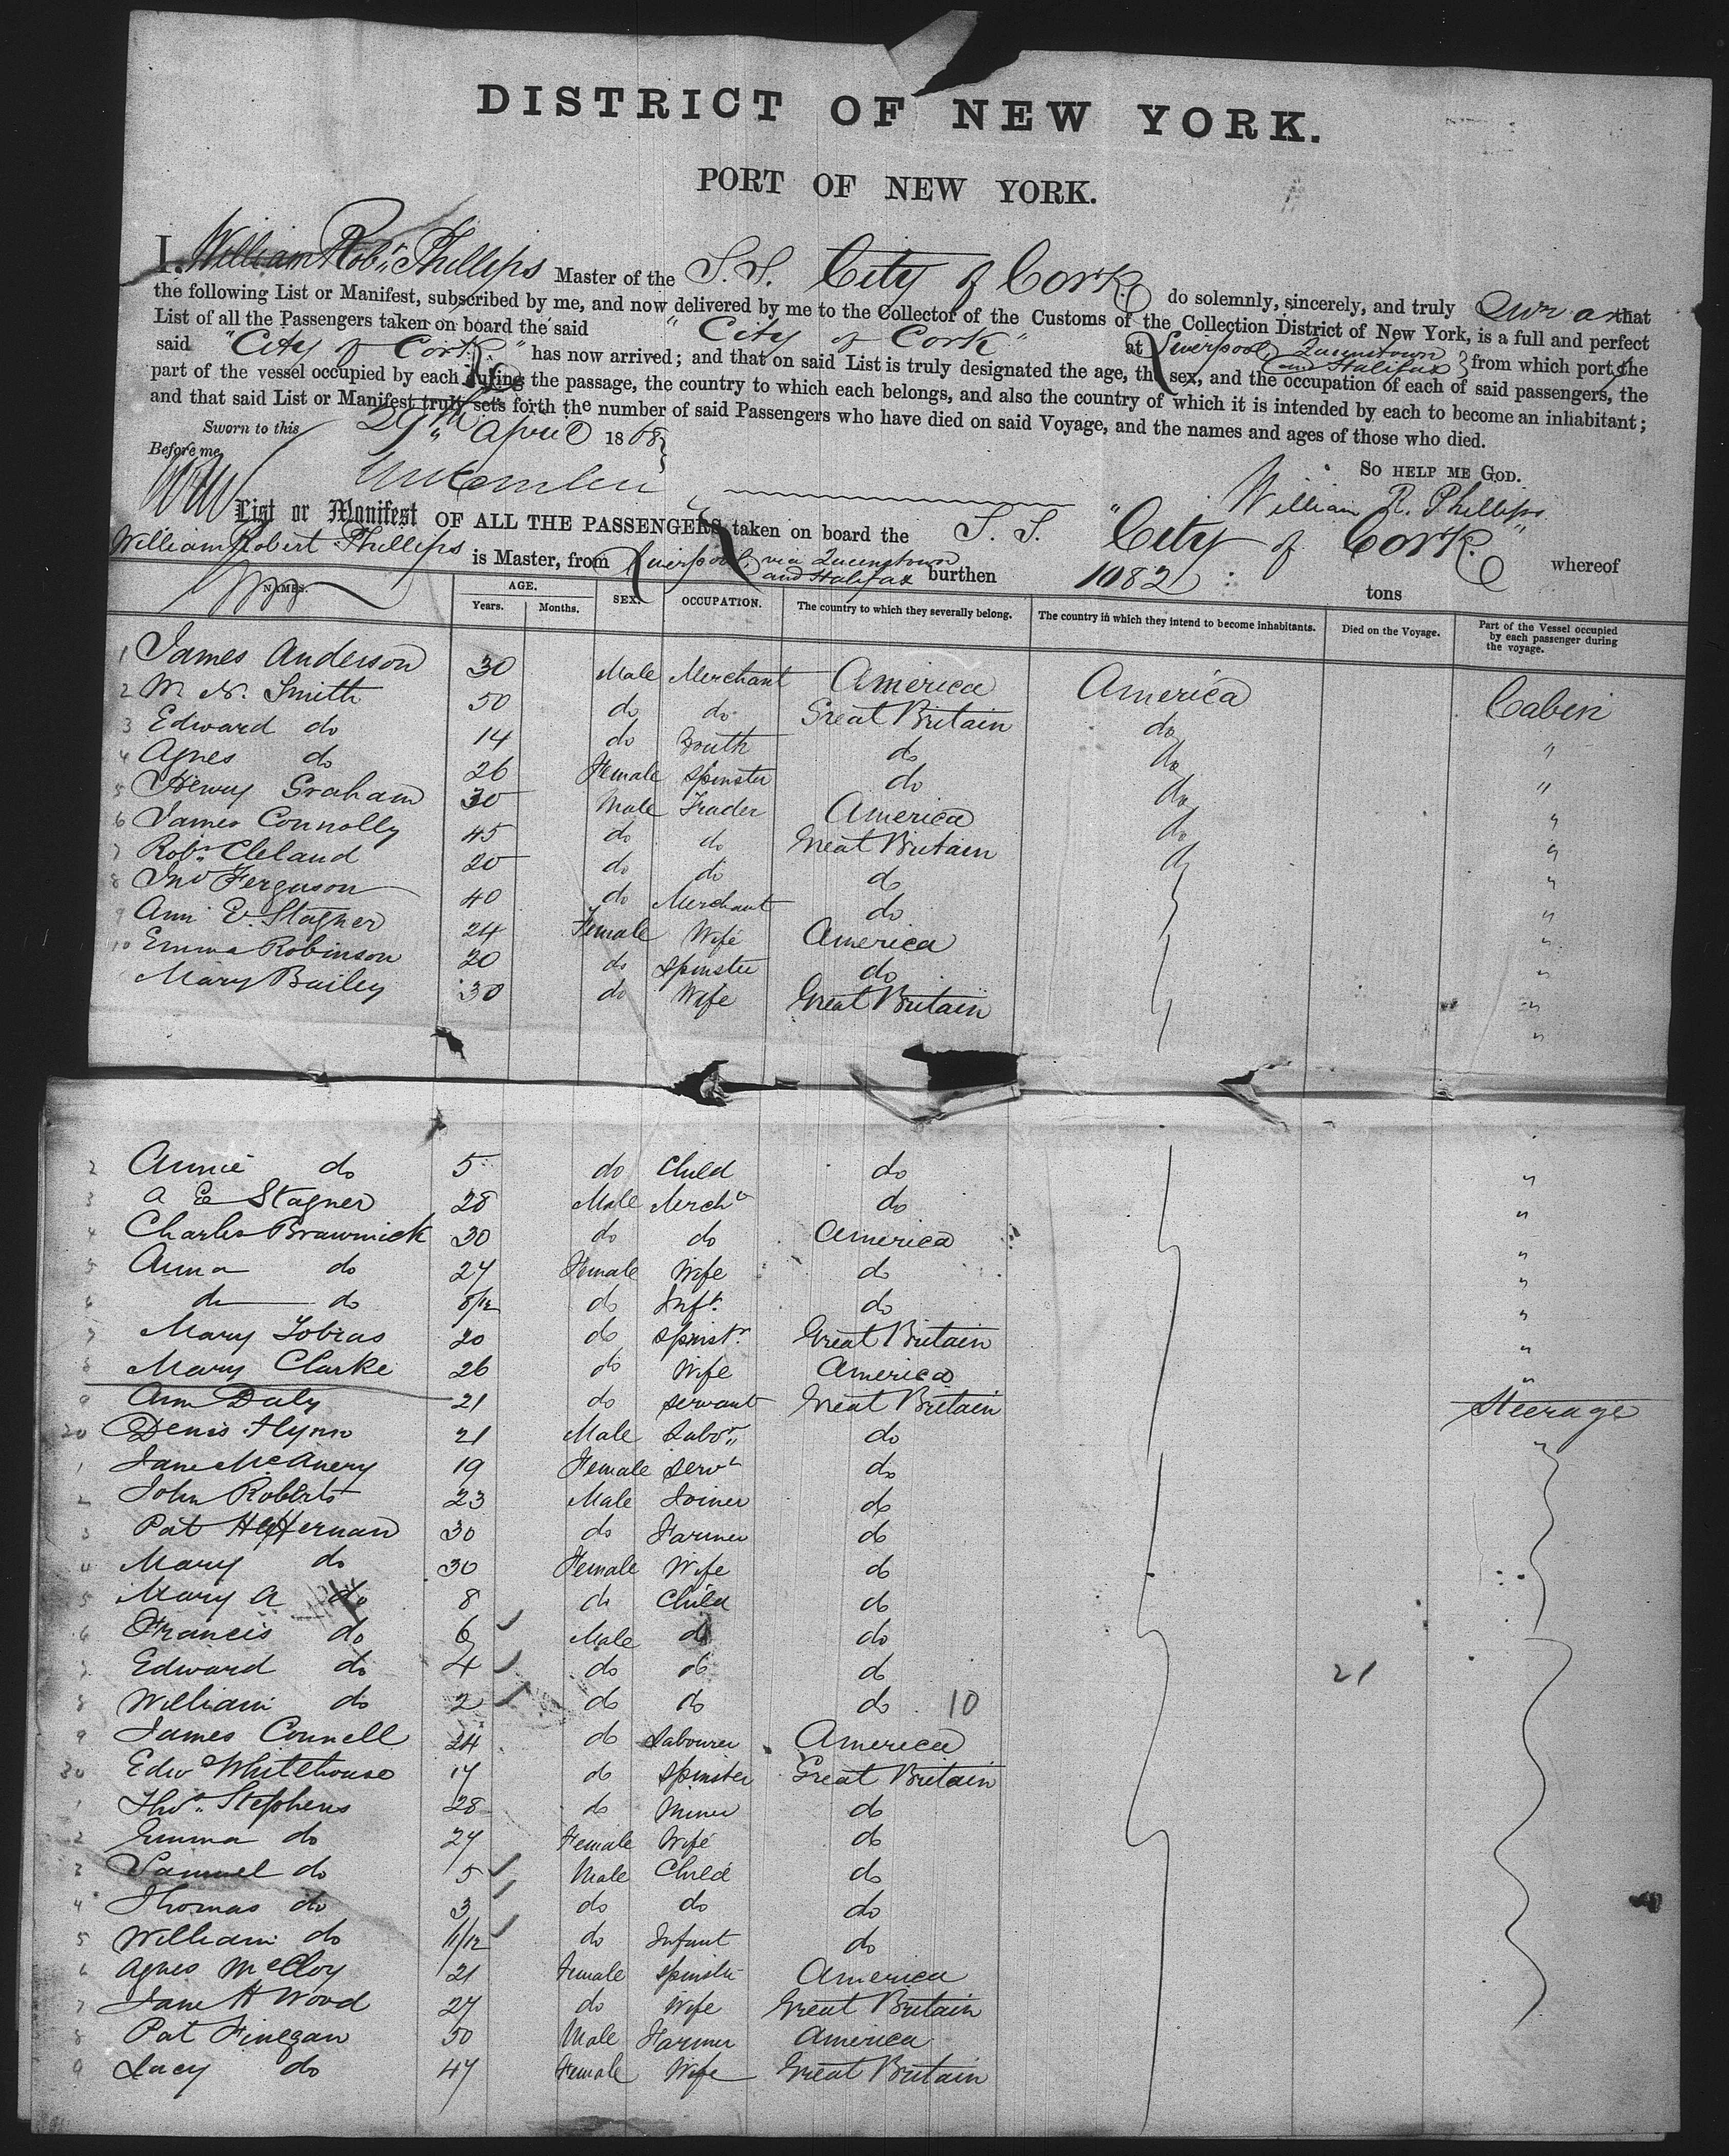 DISTRICT OF NEW YORK.
PORT OF NEW YORK.
I, William Robt Phillips Master of the S.S. City of Cork do solemnly, sincerely, and truly Swear that
the following List or Manifest, subscribed by me, and now delivered by me to the Collector of the Customs of the Collection District of New York, is a full and perfect
List of all the Passengers taken on board the said "City of Cork" at Liverpool, Queenstown and Halifax from which port the
said "City of Cork" has now arrived; and that on said List is truly designated the age, the sex, and the occupation of each of said passengers, the
part of the vessel occupied by each during the passage, the country to which each belongs, and also the country of which it is intended by each to become an inhabitant;
and that said List or Manifest truly sets forth the number of said Passengers who have died on said Voyage, and the names and ages of those who died.
Sworn to this 29th April 1868
So help me God.
Before me
William R. Phillips
List or Manifest OF ALL THE PASSENGERS taken on board the S.S. "City of Cork" whereof
William Robert Phillips is Master, from Liverpool, via Queenstown and Halifax burthen 1082 tons
NAMES. AGE. Years. Months. SEX. OCCUPATION. The country to which they severally belong. The country in which they intend to become inhabitants. Died on the Voyage. Part of the Vessel occupied by each passenger during the voyage.
1 James Anderson 30 Male Merchant America America Cabin
2 W. N. Smith 50 do do Great Britain do "
3 Edward do 14 do Youth do do "
4 Agnes do 26 Female Spinster do do "
5 Henry Graham 30 Male Trader America do "
6 James Connolly 45 do do Great Britain do "
7 Robt Cleland 20 do do do "
8 Jno Ferguson 40 do Merchant do "
9 Ann E. Stagner 24 Female Wife America "
10 Emma Robinson 20 do Spinster do "
Mary Bailey 30 do Wife Great Britain "
2 Annie do 5 do Child do "
3 A E Stagner 28 Male Mercht do "
4 Charles Brawnick 30 do do America "
5 Anna do 27 Female Wife do "
6 do do 8/12 do Inft. do "
7 Mary Tobias 20 do Spinstr. Great Britain "
8 Mary Clarke 26 do Wife America "
9 Ann Daly 21 do Servant Great Britain Steerage
20 Denis Flynn 21 Male Labor do "
1 Jane McAnery 19 Female Servt do
2 John Roberts 23 Male Joiner do
3 Pat Heffernan 30 do Farmer do
4 Mary do 30 Female Wife do
5 Mary A do 8 do Child do
6 Francis do 6 Male do do
7 Edward do 4 do do do 21
8 William do 2 do do do 10
9 James Connell 24 do Labourer America
30 Edwd Whitehouse 17 do Spinster Great Britain
1 Thos Stephens 28 do Miner do
2 Emma do 27 Female Wife do
3 Samuel do 5 Male Child do
4 Thomas do 3 do do do
5 William do 11/12 do Infant do
6 Agnes McCloy 21 Female Spinster America
7 Jane H Wood 27 do Wife Great Britain
8 Pat Finegan 50 Male Farmer America
9 Lucy do 47 Female Wife Great Britain